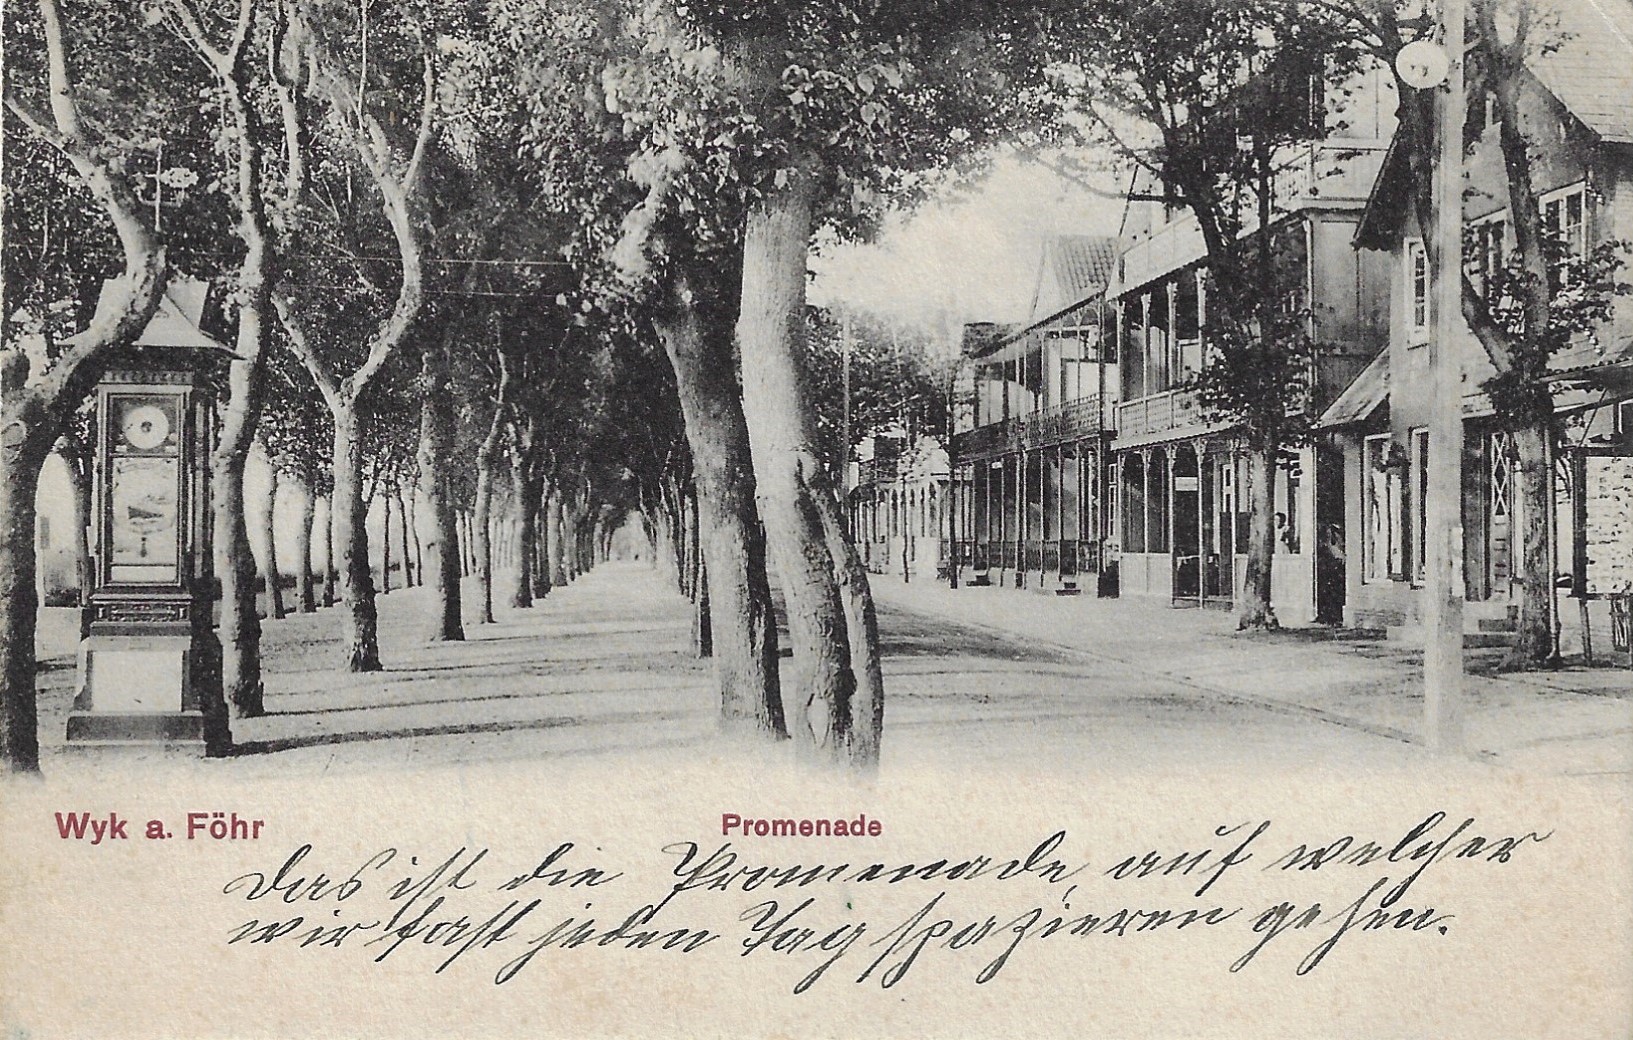 Wyk a. Föhr
Promenade
Das ist die Promenade, auf welcher
wir fast jeden Tag spazieren gehen.